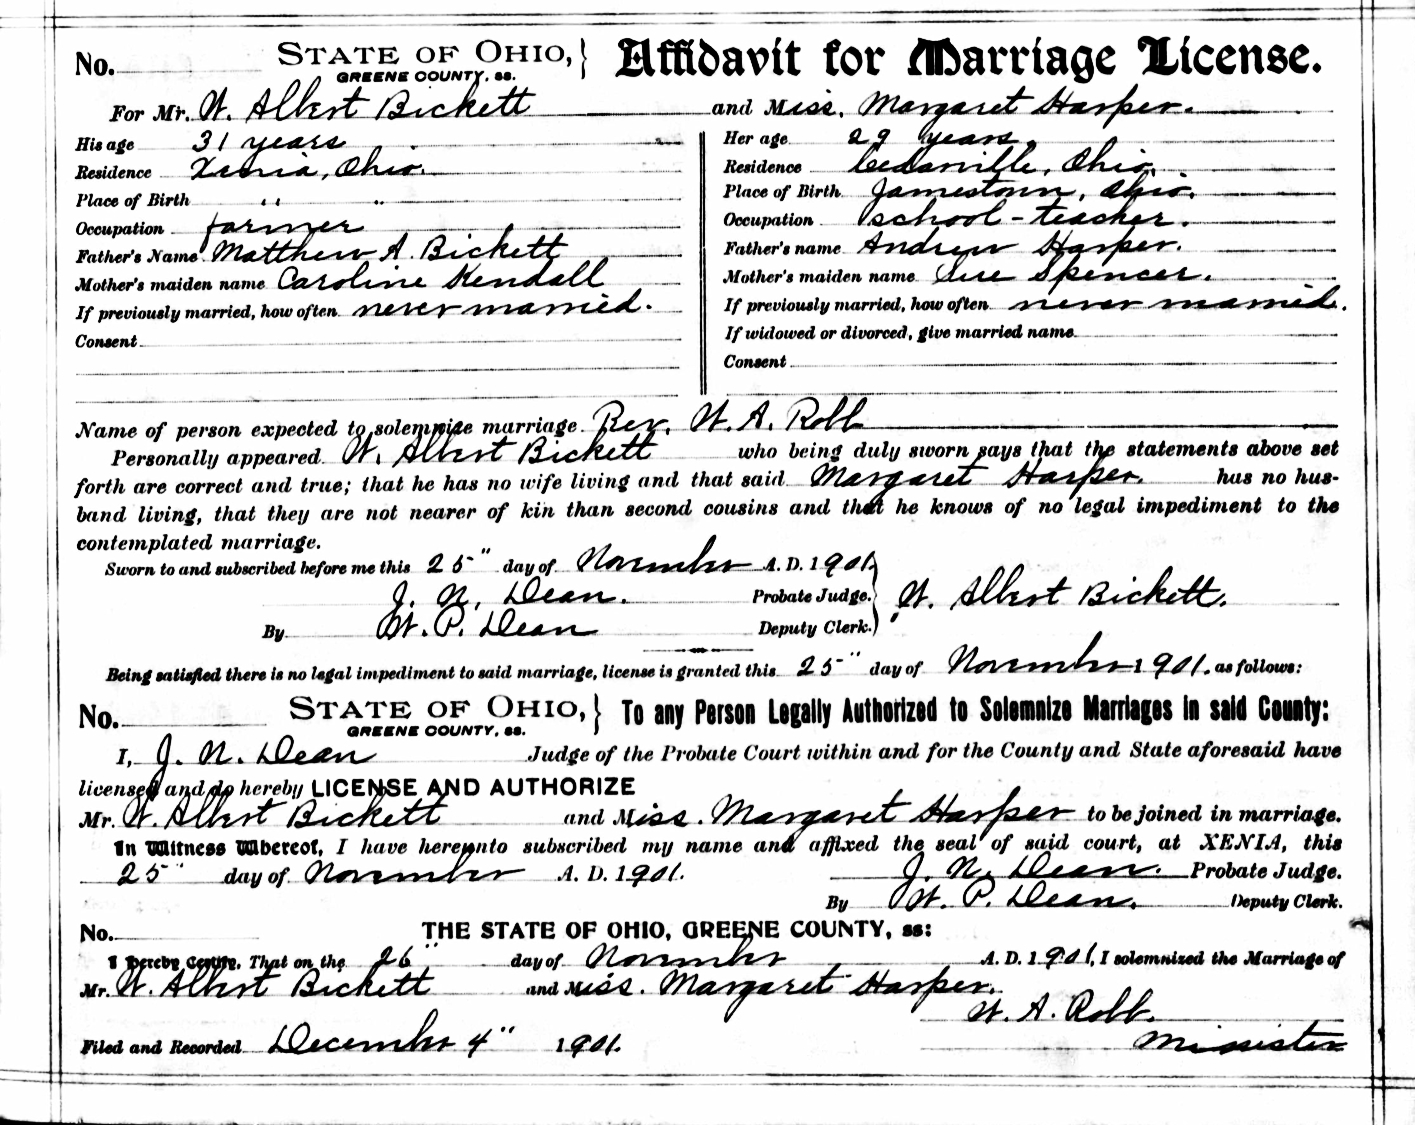 No. STATE OF OHIO, } Affidavit for Marriage License.
GREENE COUNTY, ss.
For Mr. W. Albert Bickett and Miss. Margaret Harper.
His age 31 years
Residence Xenia, Ohio.
Place of Birth " "
Occupation farmer
Father's Name Matthew A. Bickett
Mother's maiden name Caroline Kendall
If previously married, how often never married.
Consent
Her age 29 years.
Residence Cedarville, Ohio.
Place of Birth Jamestown, Ohio.
Occupation school-teacher.
Father's name Andrew Harper.
Mother's maiden name Sue Spencer.
If previously married, how often never married.
If widowed or divorced, give married name
Consent
Name of person expected to solemnize marriage Rev. W. A. Robb
Personally appeared W. Albert Bickett who being duly sworn says that the statements above set
forth are correct and true; that he has no wife living and that said Margaret Harper. has no hus-
band living, that they are not nearer of kin than second cousins and that he knows of no legal impediment to the
contemplated marriage.
Sworn to and subscribed before me this 25" day of November A. D. 1901.
J. N. Dean. Probate Judge. } W. Albert Bickett.
By W. P. Dean Deputy Clerk.
Being satisfied there is no legal impediment to said marriage, license is granted this 25" day of November 1901. as follows:
No. STATE OF OHIO, } To any Person Legally Authorized to Solemnize Marriages in said County:
GREENE COUNTY, ss.
I, J. N. Dean Judge of the Probate Court within and for the County and State aforesaid have
licensed and do hereby LICENSE AND AUTHORIZE
Mr. W. Albert Bickett and Miss. Margaret Harper to be joined in marriage.
In Witness Whereof, I have hereunto subscribed my name and affixed the seal of said court, at XENIA, this
25" day of November A. D. 1901. J. N. Dean. Probate Judge.
By W. P. Dean. Deputy Clerk.
No. THE STATE OF OHIO, GREENE COUNTY, ss:
I Hereby Certify, That on the 26" day of November A. D. 1901, I solemnized the Marriage of
Mr. W. Albert Bickett and Miss. Margaret Harper.
W. A. Robb.
Filed and Recorded December 4" 1901. Minister